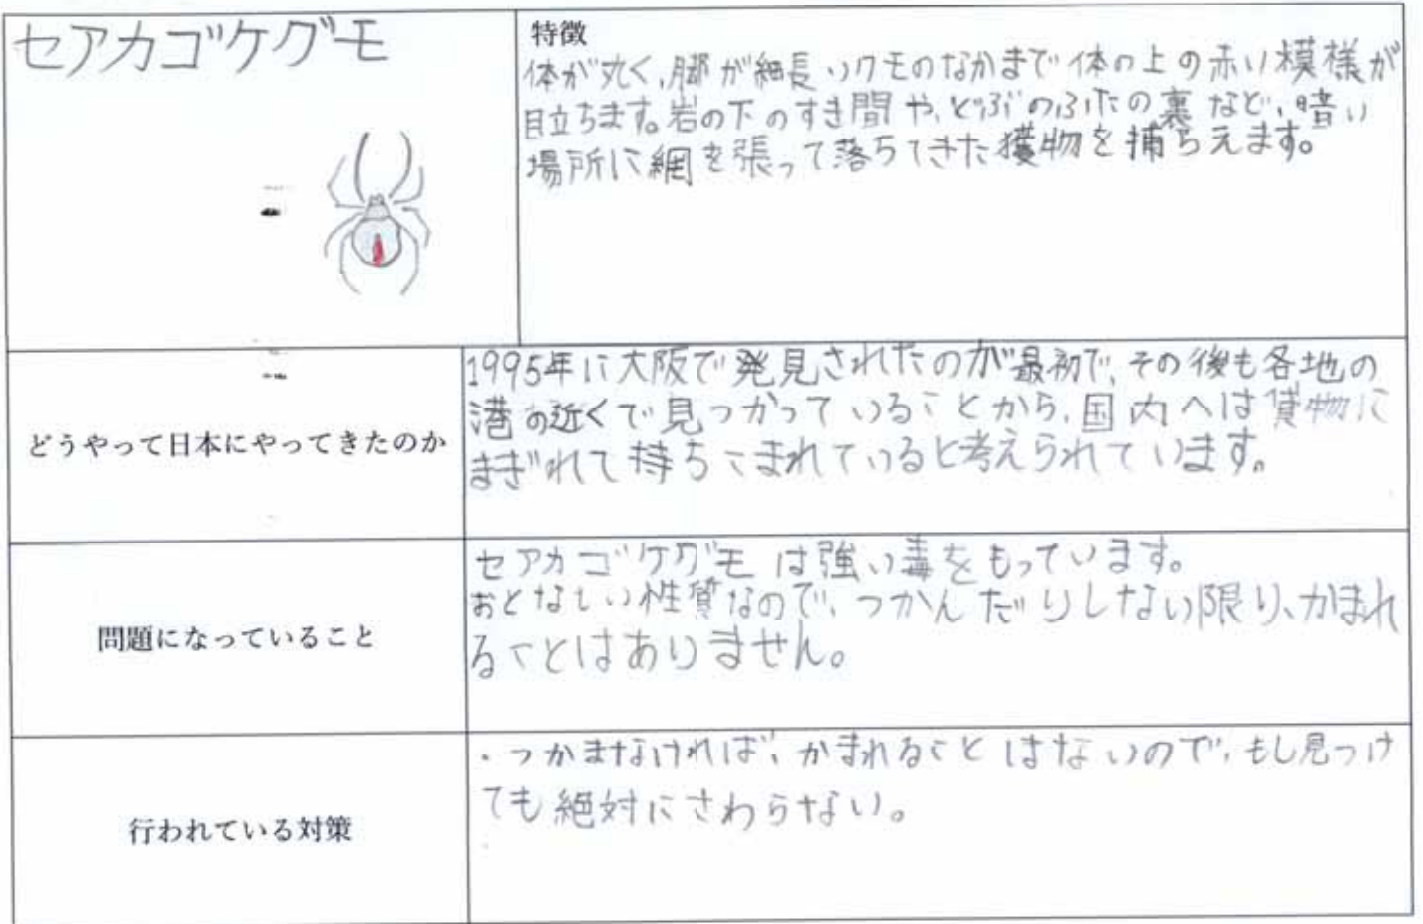 セアカゴケグモ
特徴
体が丸く、脚が細長いクモのなかまで体の上の赤い模様が
目立ちます。岩の下のすき間や、どぶのふたの裏など、暗い
場所に網を張って落ちてきた獲物を捕らえます。
どうやって日本にやってきたのか
1995年に大阪で発見されたのが最初で、その後も各地の
港の近くで見つかっていることから、国内へは貨物に
まぎれて持ちこまれていると考えられています。
問題になっていること
セアカゴケグモは強い毒をもっています。
おとなしい性質なので、つかんだりしない限り、かまれ
ることはありません。
行われている対策
・つかまなければ、かまれることはないので、もし見つけ
ても絶対にさわらない。